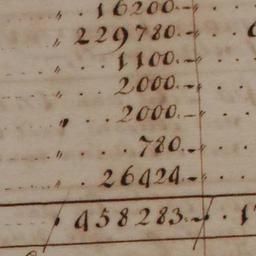 " . 16200.-
" . 229780.-
" . . 1100.-
" . . 2000.-
" . . 2000.-
" . . . 780.-
" . . 26424-
" . 458283.-